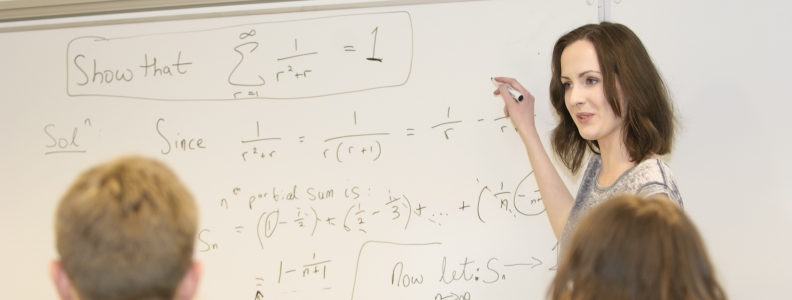 Show that ∑_{r=1}^{∞} 1/(r²+r) = 1
Solⁿ: Since 1/(r²+r) = 1/(r(r+1)) = 1/r - 
partial sum is:
Sₙ = (1 - 1/2) + (1/2 - 1/3) + ... + (1/n -
= 1 - 1/(n+1)
Now let: Sₙ →
n→∞